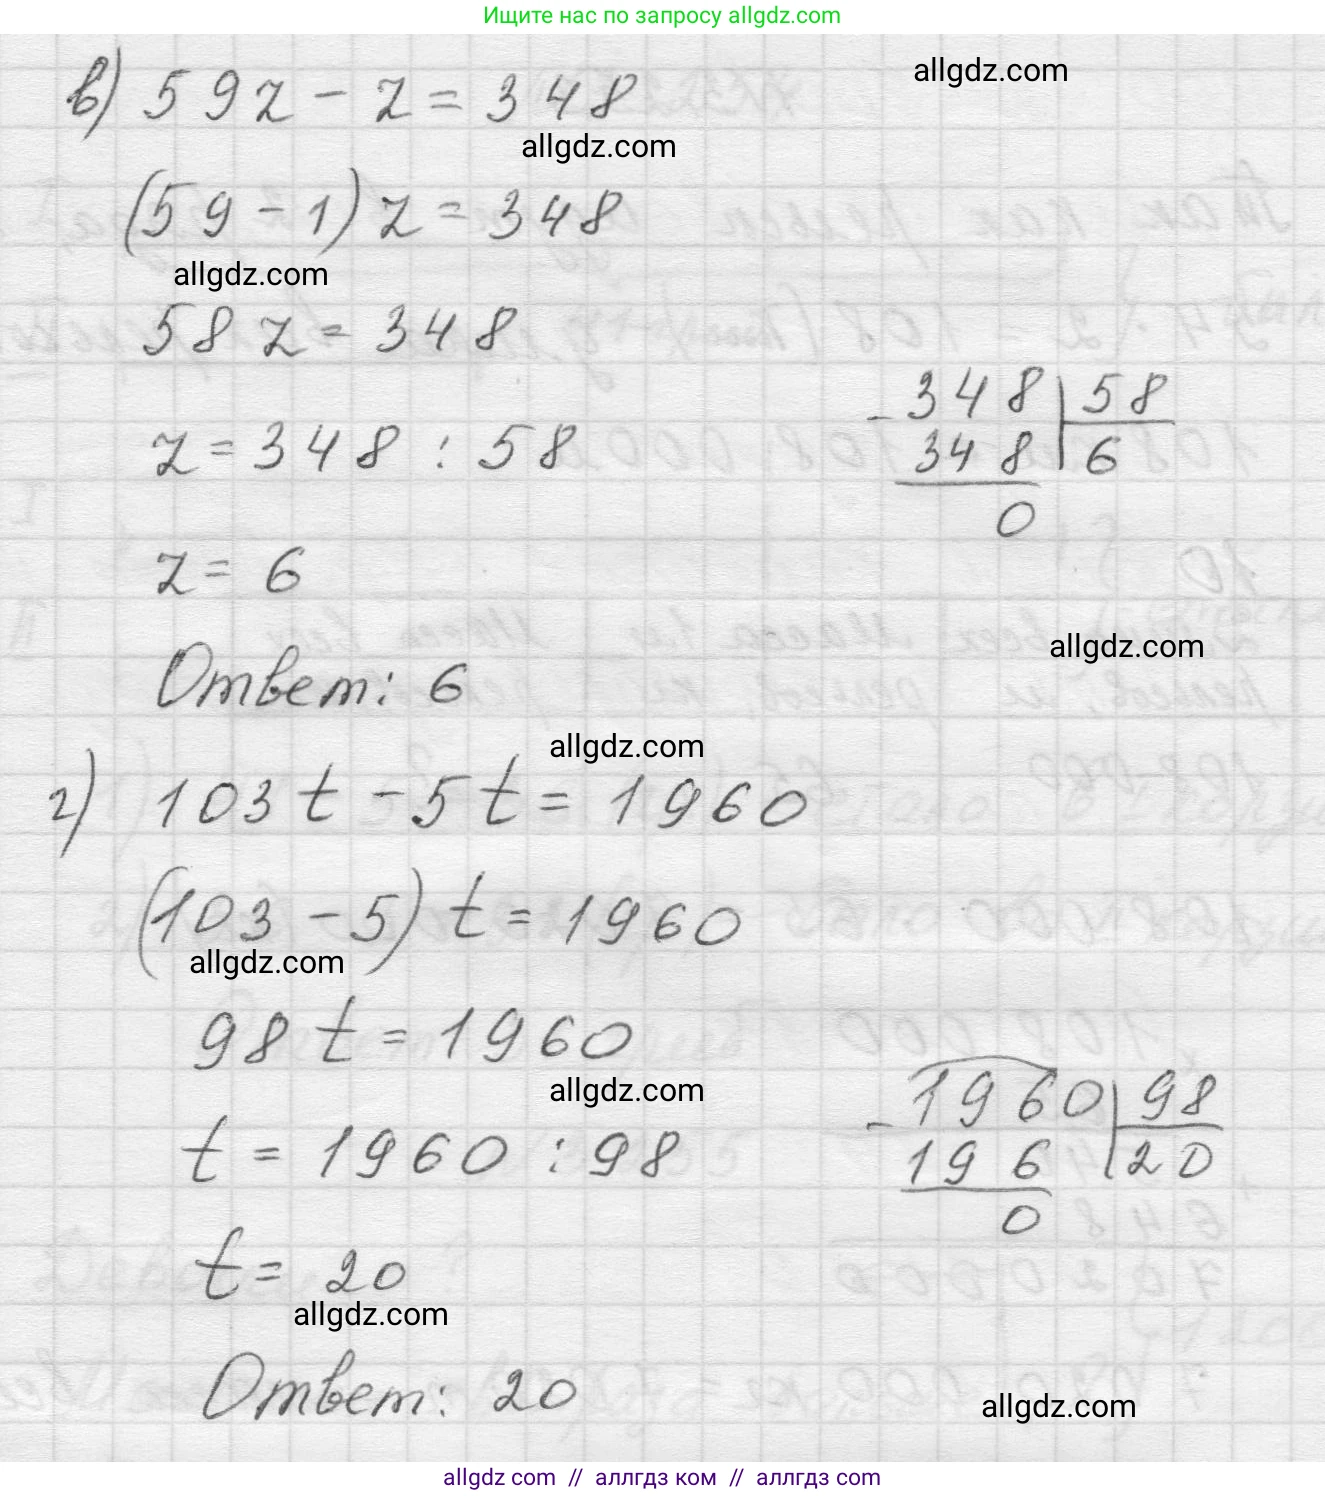 Ищите нас по запросу allgdz.com
в) 59z - z = 348
allgdz.com
allgdz.com
(59 - 1) z = 348
allgdz.com
58 z = 348
z = 348 : 58
- 348 | 58
348 | 6
0
z = 6
allgdz.com
Ответ: 6
allgdz.com
г) 103 t - 5 t = 1960
(103 - 5) t = 1960
allgdz.com
98 t = 1960
allgdz.com
t = 1960 : 98
- 1960 | 98
196 | 20
0
t = 20
allgdz.com
Ответ: 20
allgdz.com
allgdz com // аллгдз ком // аллгдз com